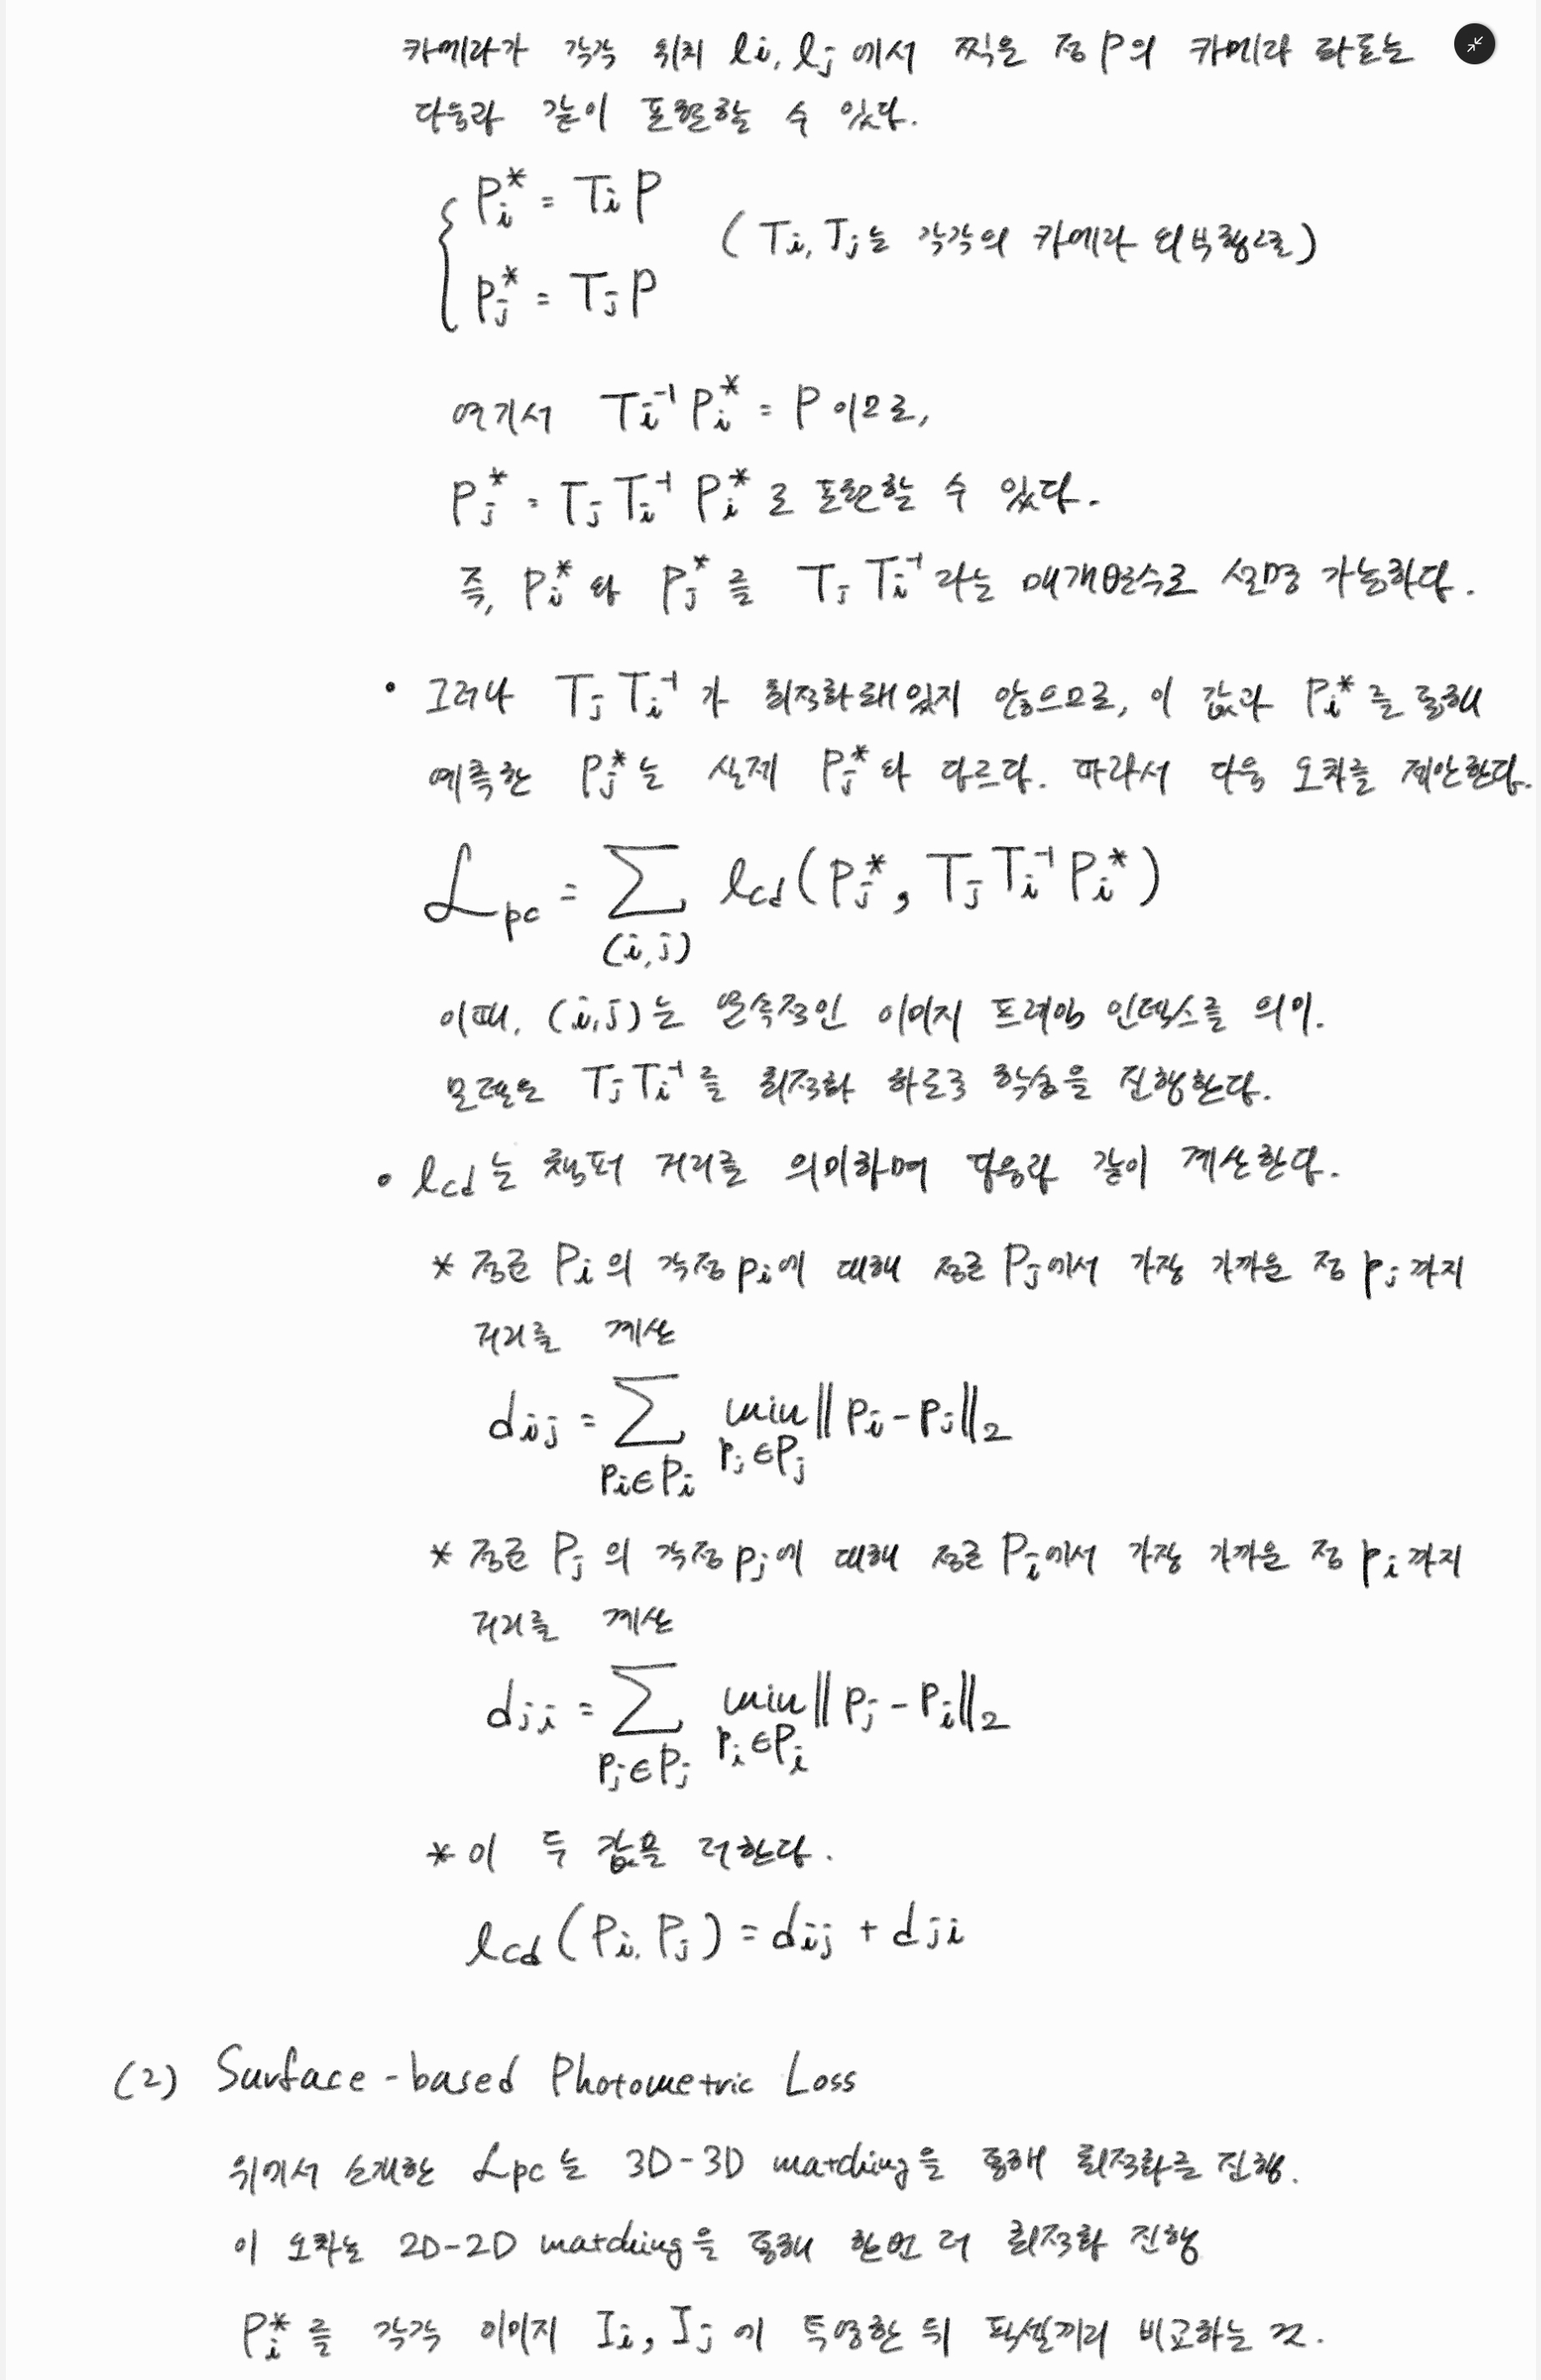 카메라가 각각 위치 li, lj 에서 찍은 점 P의 카메라 좌표는
다음과 같이 표현할 수 있다.
Pi* = Ti P
Pj* = Tj P
(Ti, Tj는 각각의 카메라 외부행렬)
여기서 Ti⁻¹ Pi* = P 이므로,
Pj* = Tj Ti⁻¹ Pi* 로 표현할 수 있다.
즉, Pi* 와 Pj* 를 Tj Ti⁻¹ 라는 매개변수로 설명 가능하다.
• 그러나 Tj Ti⁻¹ 가 최적화돼있지 않으므로, 이 값과 Pi* 를 통해
예측한 Pj* 는 실제 Pj* 와 다르다. 따라서 다음 오차를 제안한다.
ℒpc = Σ(i,j) lcd(Pj*, Tj Ti⁻¹ Pi*)
이때, (i,j)는 연속적인 이미지 프레임 인덱스를 의미.
모델은 Tj Ti⁻¹ 를 최적화 하도록 학습을 진행한다.
• lcd는 챔퍼 거리를 의미하며 다음과 같이 계산한다.
* 점군 Pi 의 각점 pi에 대해 점군 Pj에서 가장 가까운 점 pj 까지
거리를 계산
dij = Σ pi∈Pi min pj∈Pj ‖pi - pj‖2
* 점군 Pj 의 각점 pj에 대해 점군 Pi에서 가장 가까운 점 pi 까지
거리를 계산
dji = Σ pj∈Pj min pi∈Pi ‖pj - pi‖2
* 이 두 값을 더한다.
lcd (Pi, Pj) = dij + dji
(2) Surface-based Photometric Loss
위에서 소개한 ℒpc 는 3D-3D matching을 통해 최적화를 진행.
이 오차는 2D-2D matching을 통해 한번 더 최적화 진행
Pi* 를 각각 이미지 Ii, Ij 에 투영한 뒤 픽셀끼리 비교하는 것.